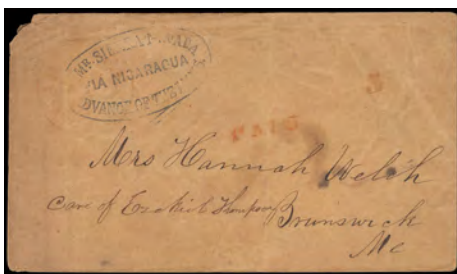 VIA NICARAGUA
3
PAID
Mrs Hannah Welch
Care of Ezekiel Thompson
Brunswick
Me